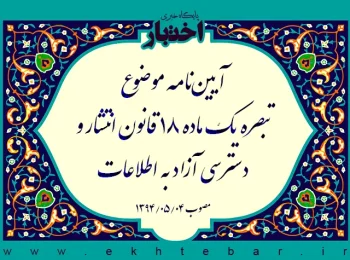 پایگاه خبری
اختبار
آیین‌نامه موضوع
تبصره یک ماده ۱۸ قانون انتشار و
دسترسی آزاد به اطلاعات
مصوب ۱۳۹۴/۰۵/۰۴
www.ekhtebar.ir